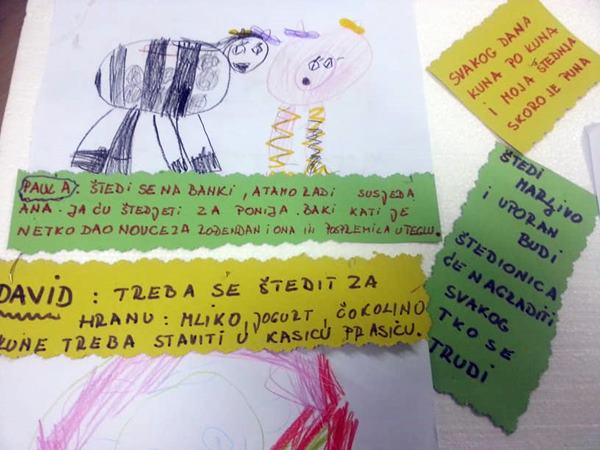 SVAKOG DANA
KUNA PO KUNA
I MOJA ŠTEDNJA
SKORO JE PUNA
PAULA: ŠTEDI SE NA BANKI, A TAMO RADI SUSJEDA
ANA. JA ĆU ŠTEDJETI ZA PONIJA. BAKI KATI JE
NETKO DAO NOVCE ZA ROĐENDAN I ONA IH POSPREMILA U TEGLU.
DAVID: TREBA SE ŠTEDIT ZA
HRANU: MLIKO, JOGURT, ČOKOLINO
KUNE TREBA STAVITI U KASICU PRASICU.
ŠTEDI
MARLJIVO
I UPORAN
BUDI
ŠTEDIONICA
ĆE NAGRADITI
SVAKOG
TKO SE
TRUDI